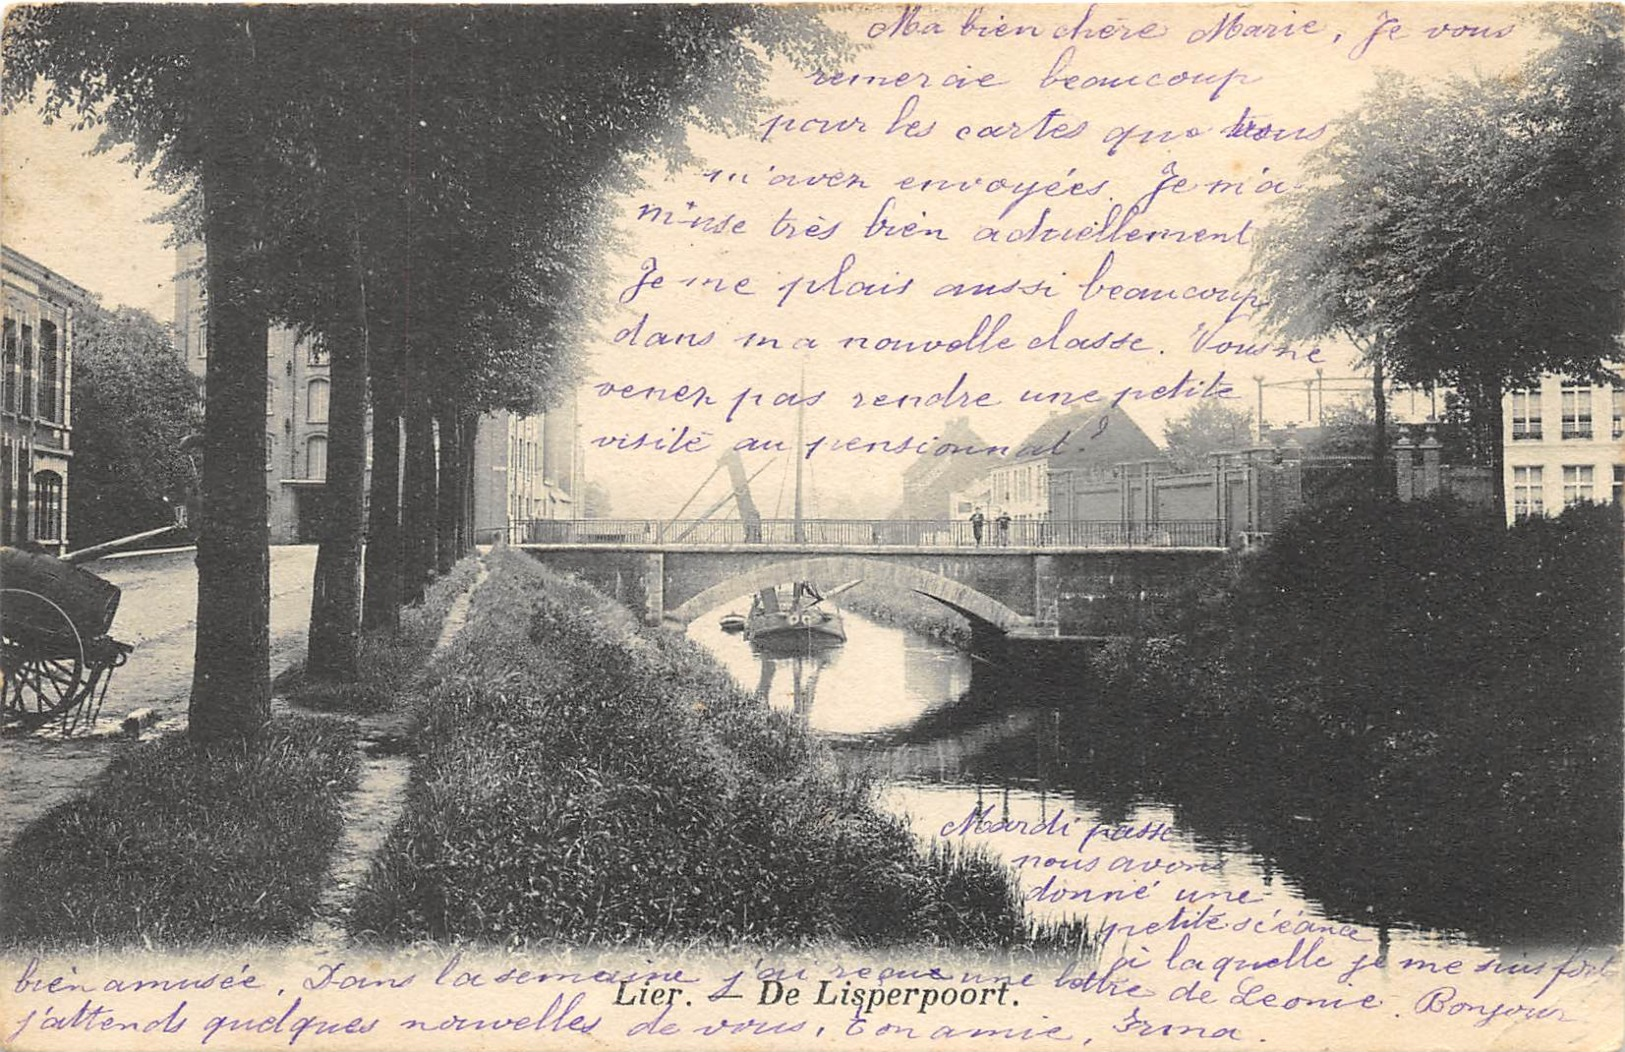 Ma bien chère Marie, Je vous
remercie beaucoup
pour les cartes que vous
m'avez envoyées. Je m'a
muse très bien actuellement
Je me plais aussi beaucoup
dans ma nouvelle classe. Vous ne
venez pas rendre une petite
visite au pensionnat?
Mardi passé
nous avons
donné une
petite scéance
à laquelle je me suis fort
bien amusée. Dans la semaine j'ai reçue une lettre de Leonie. Bonjour
Lier. — De Lisperpoort.
j'attends quelques nouvelles de vous, ton amie, Irma.